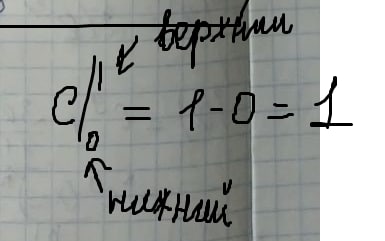 верхний
C|₀¹ = 1 - 0 = 1
нижний